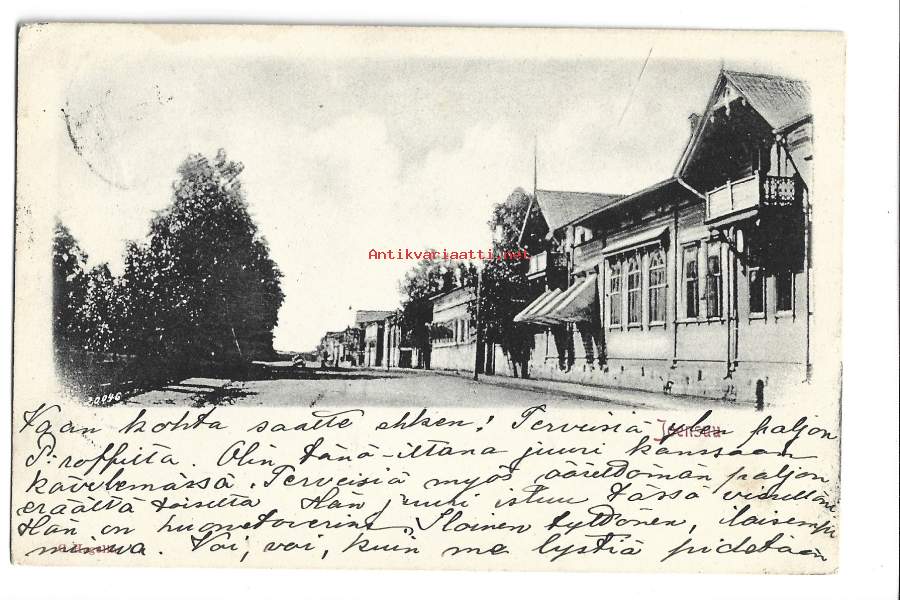 Antikvariaatti.net
20946
Joensuu
Vaan kohta saatte ehken! Terveisiä ylen paljon
P:roffilta. Olin tänä-iltana juuri kanssaan
kävelemässä. Terveisiä myös äärettömän paljon
eräältä toiselta Hän juuri istuu tässä
Hän on huonetoverini. Iloinen tyttönen, iloisempi
minua. Voi, voi, kuin me lystiä pidetään